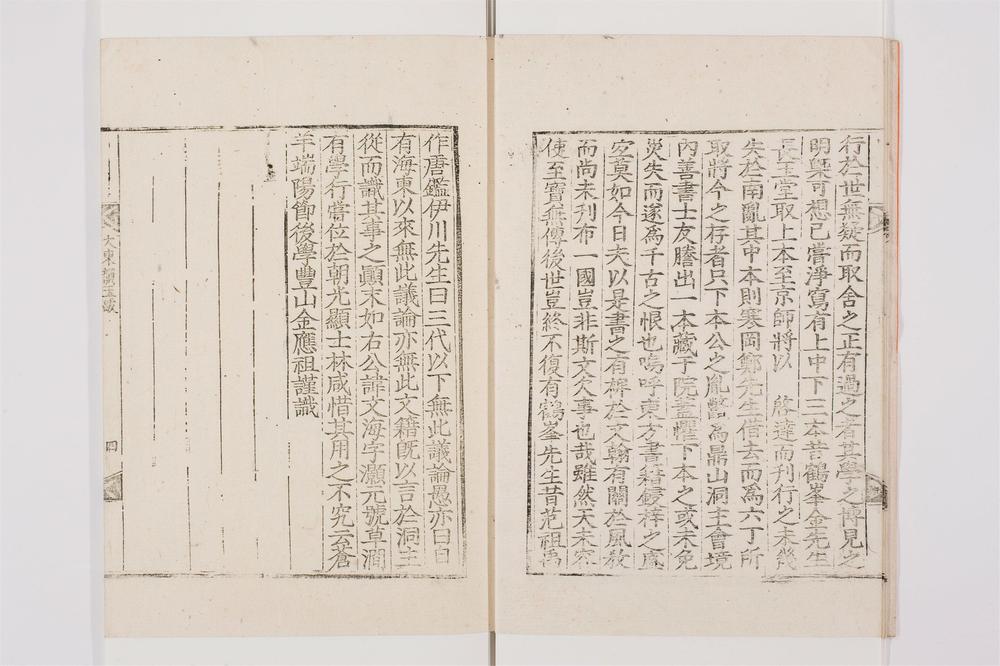 行於世無疑而取舍之正有過之者其學之博見之
明槩可想已嘗淨寫有上中下三本昔鶴峯金先生
長玉堂取上本至京師將以 啓達而刊行之未幾
失於南亂其中本則寒岡鄭先生借去而爲六丁所
取將今之存者只下本公之胤 爲鼎山洞主會境
內善書士友謄出一本藏于院盖懼下本之或未免
災失而遂爲千古之恨也嗚呼東方書籍鋟梓之廣
宜莫如今日夫以是書之有裨於文翰有關於風敎
而尚未刊布一國豈非斯文欠事也哉雖然天未必
使至寶無傳後世豈終不復有鶴峯先生昔范祖禹
作唐鑑伊川先生曰三代以下無此議論愚亦曰自
有海東以來無此議論亦無此文籍旣以言於洞主
從而識其事之顚末如右公諱文海字灝元號草澗
有學行嘗位於朝光顯士林咸惜其用之不究云蒼
羊端陽節後學豊山金應祖謹識
大東韻玉識
四